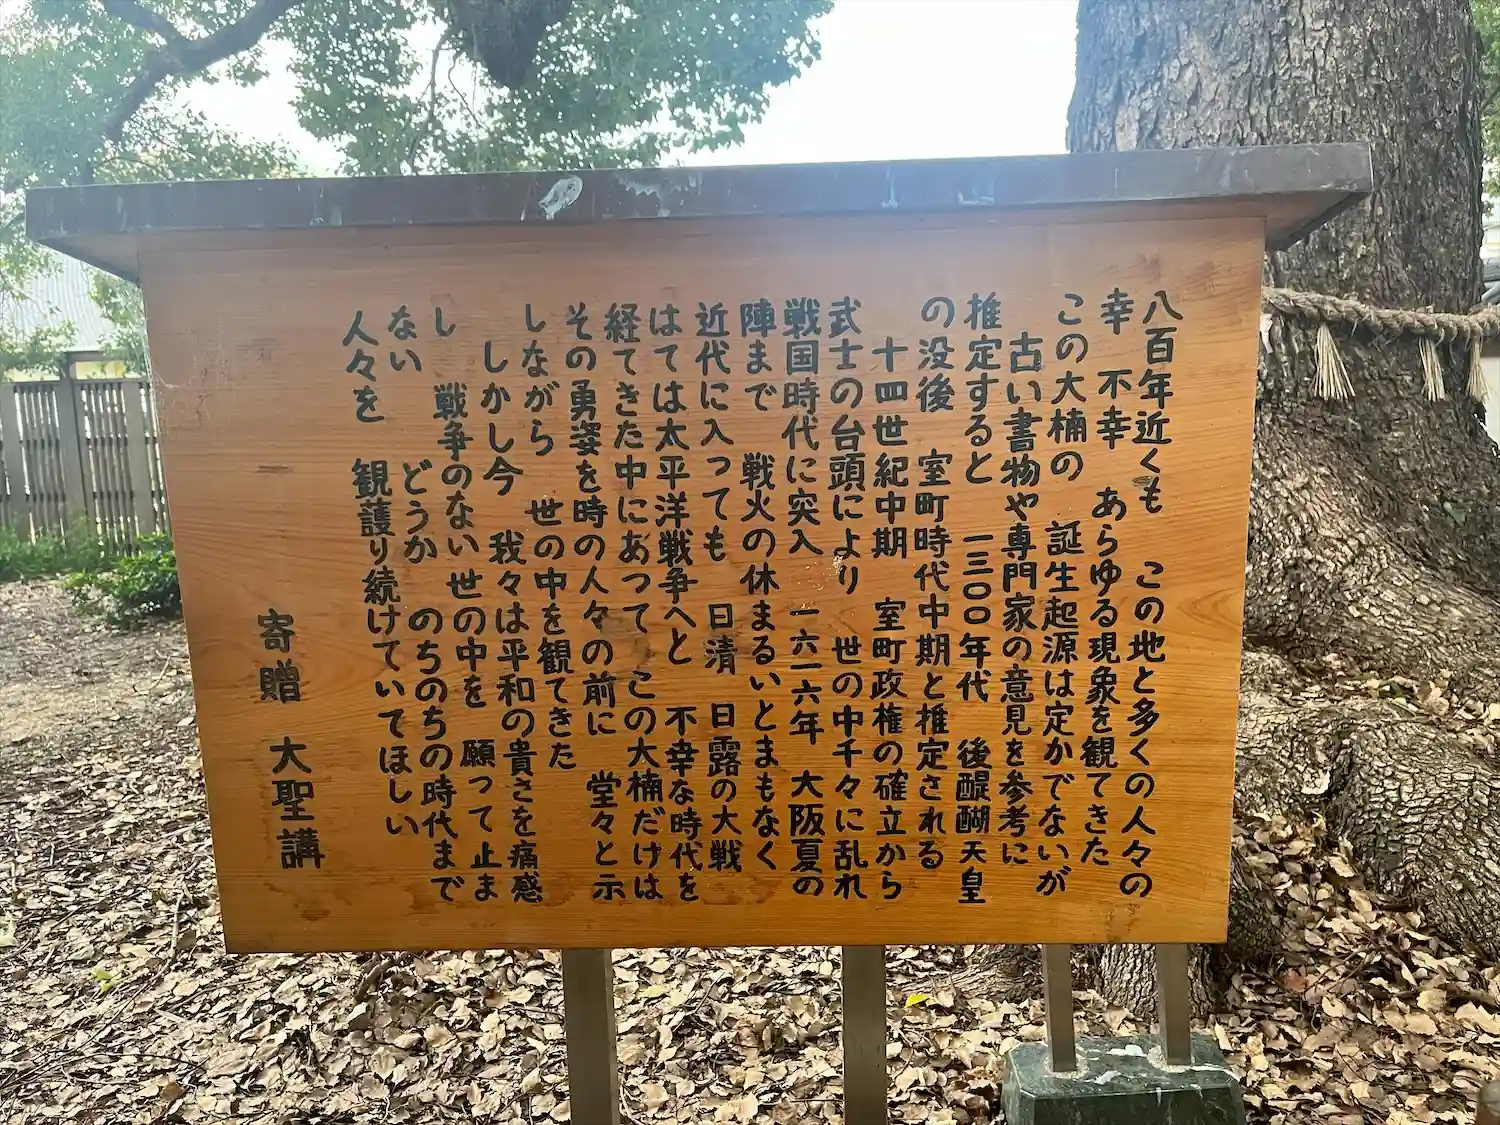 八百年近くも　この地と多くの人々の
幸　不幸　あらゆる現象を観てきた
この大楠の　誕生起源は定かでないが
古い書物や専門家の意見を参考に
推定すると　一三〇〇年代　後醍醐天皇
の没後　室町時代中期と推定される
十四世紀中期　室町政権の確立から
武士の台頭により　世の中千々に乱れ
戦国時代に突入　一六一六年　大阪夏の
陣まで　戦火の休まるいとまもなく
近代に入っても　日清　日露の大戦
はては太平洋戦争へと　不幸な時代を
経てきた中にあって　この大楠だけは
その勇姿を時の人々の前に　堂々と示
しながら　世の中を観てきた
しかし今　我々は平和の貴さを痛感
し　戦争のない世の中を　願って止ま
ない　どうか　のちのちの時代まで
人々を　観護り続けていてほしい
寄贈　大聖講